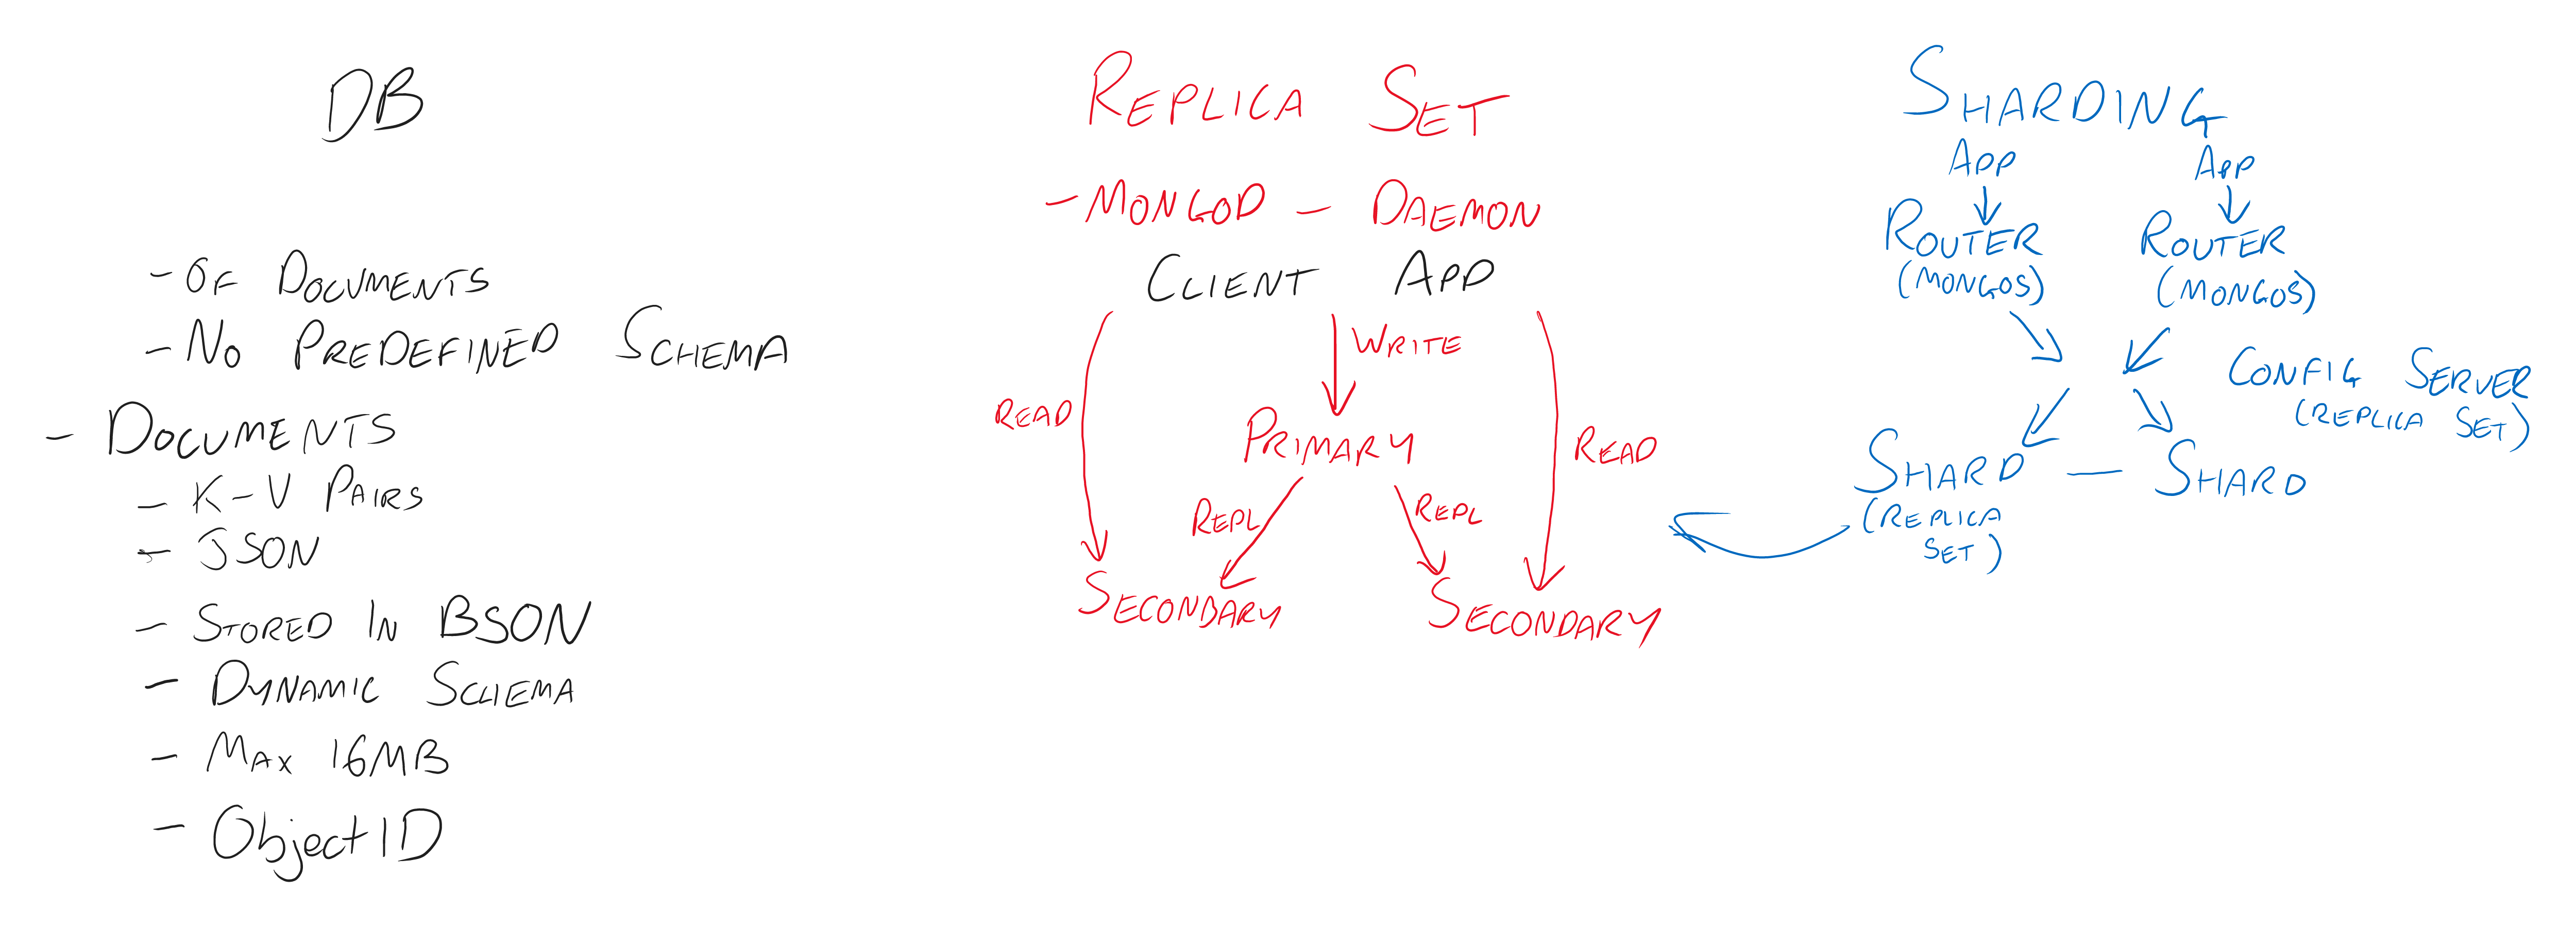 DB
- OF DOCUMENTS
- NO PREDEFINED SCHEMA
- DOCUMENTS
- K-V PAIRS
- JSON
- STORED IN BSON
- DYNAMIC SCHEMA
- MAX 16MB
- ObjectID
REPLICA SET
- MONGOD - DAEMON
CLIENT APP
WRITE
READ
PRIMARY
READ
REPL
REPL
SECONDARY
SECONDARY
SHARDING
APP
APP
ROUTER
ROUTER
(MONGOS)
(MONGOS)
CONFIG SERVER
(REPLICA SET)
SHARD - SHARD
(REPLICA
SET)